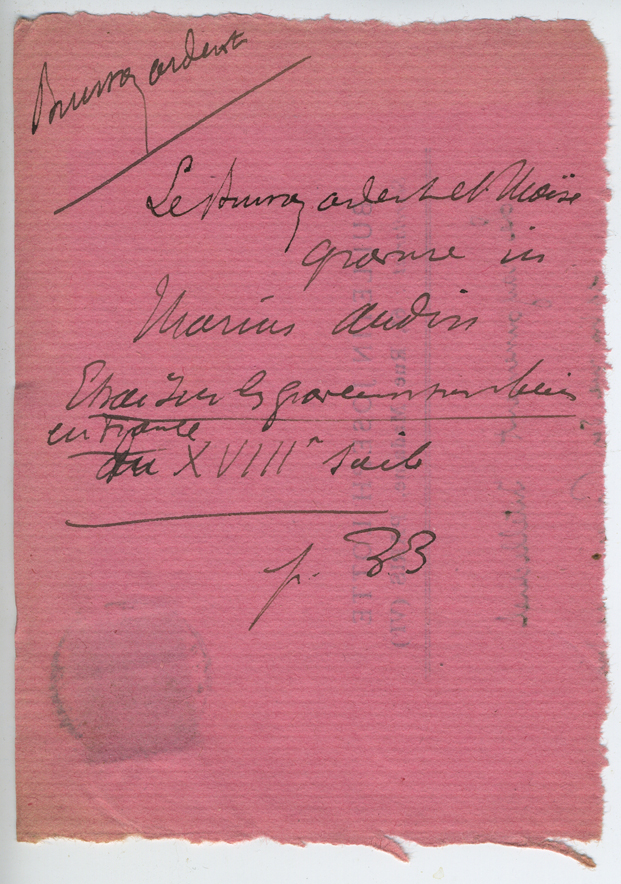 Buisson ardent
Le Buisson ardent et Moïse
gravure in
Marius Audin
Essai sur les graveurs sur bois
en France
du XVIIIe siècle
p. 33